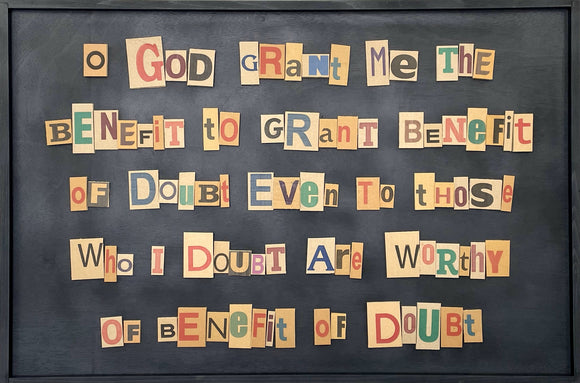 O GOD GRANt Me THE
BENEFIT tO GRanT BENeFit
oF DouBt EVEn To tHOSe
WHo I DoUBT ARe WORthY
OF BENeFit oF DOUBt